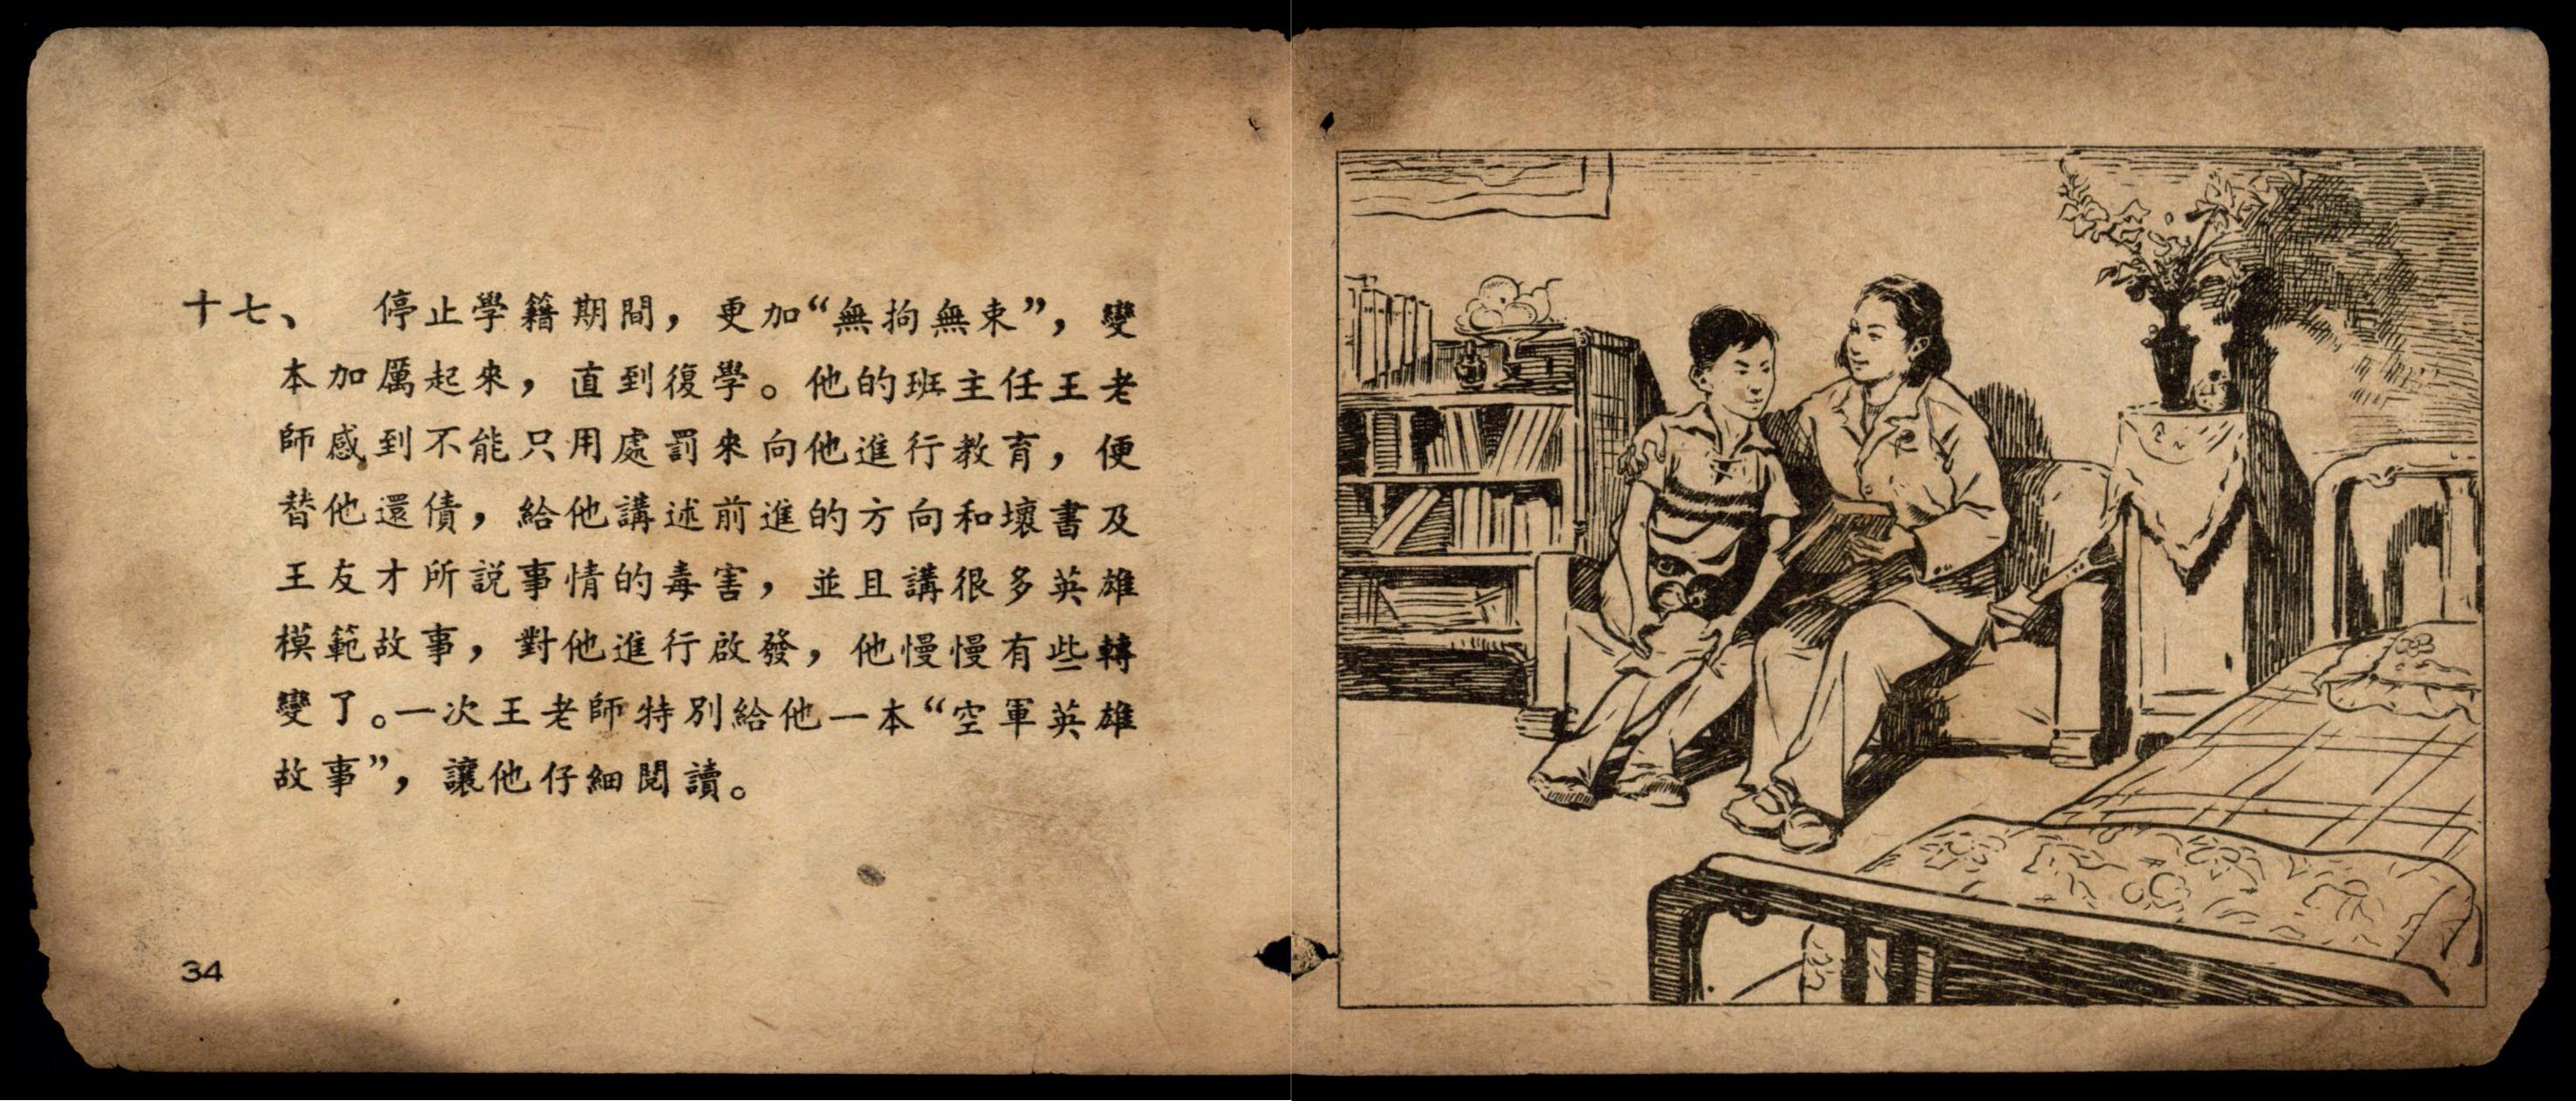 十七、 停止學籍期間，更加“無拘無束”，變
本加厲起來，直到復學。他的班主任王老
師感到不能只用處罰來向他進行教育，便
替他還債，給他講述前進的方向和壞書及
王友才所説事情的毒害，並且講很多英雄
模範故事，對他進行啟發，他慢慢有些轉
變了。一次王老師特別給他一本“空軍英雄
故事”，讓他仔細閱讀。
34